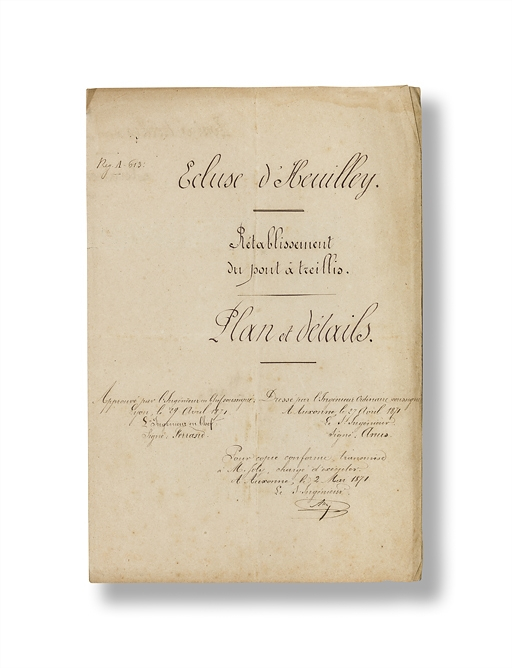 Reg. A. 613.
Ecluse d'Heuilley.
Rétablissement
du pont à treillis.
Plan et détails.
Approuvé par l'Ingénieur en Chef
Lyon, le 29 Avril 1871
L'Ingénieur en Chef
Signé:
Dressé par l'Ingénieur Ordinaire soussigné
A Auxonne, le 27 Avril 1871
Le Sr Ingénieur
Signé:
Pour copie conforme, transmise
à M. Joly, chargé d'exécuter.
A Auxonne, le 2 Mai 1871
Le Sr Ingénieur